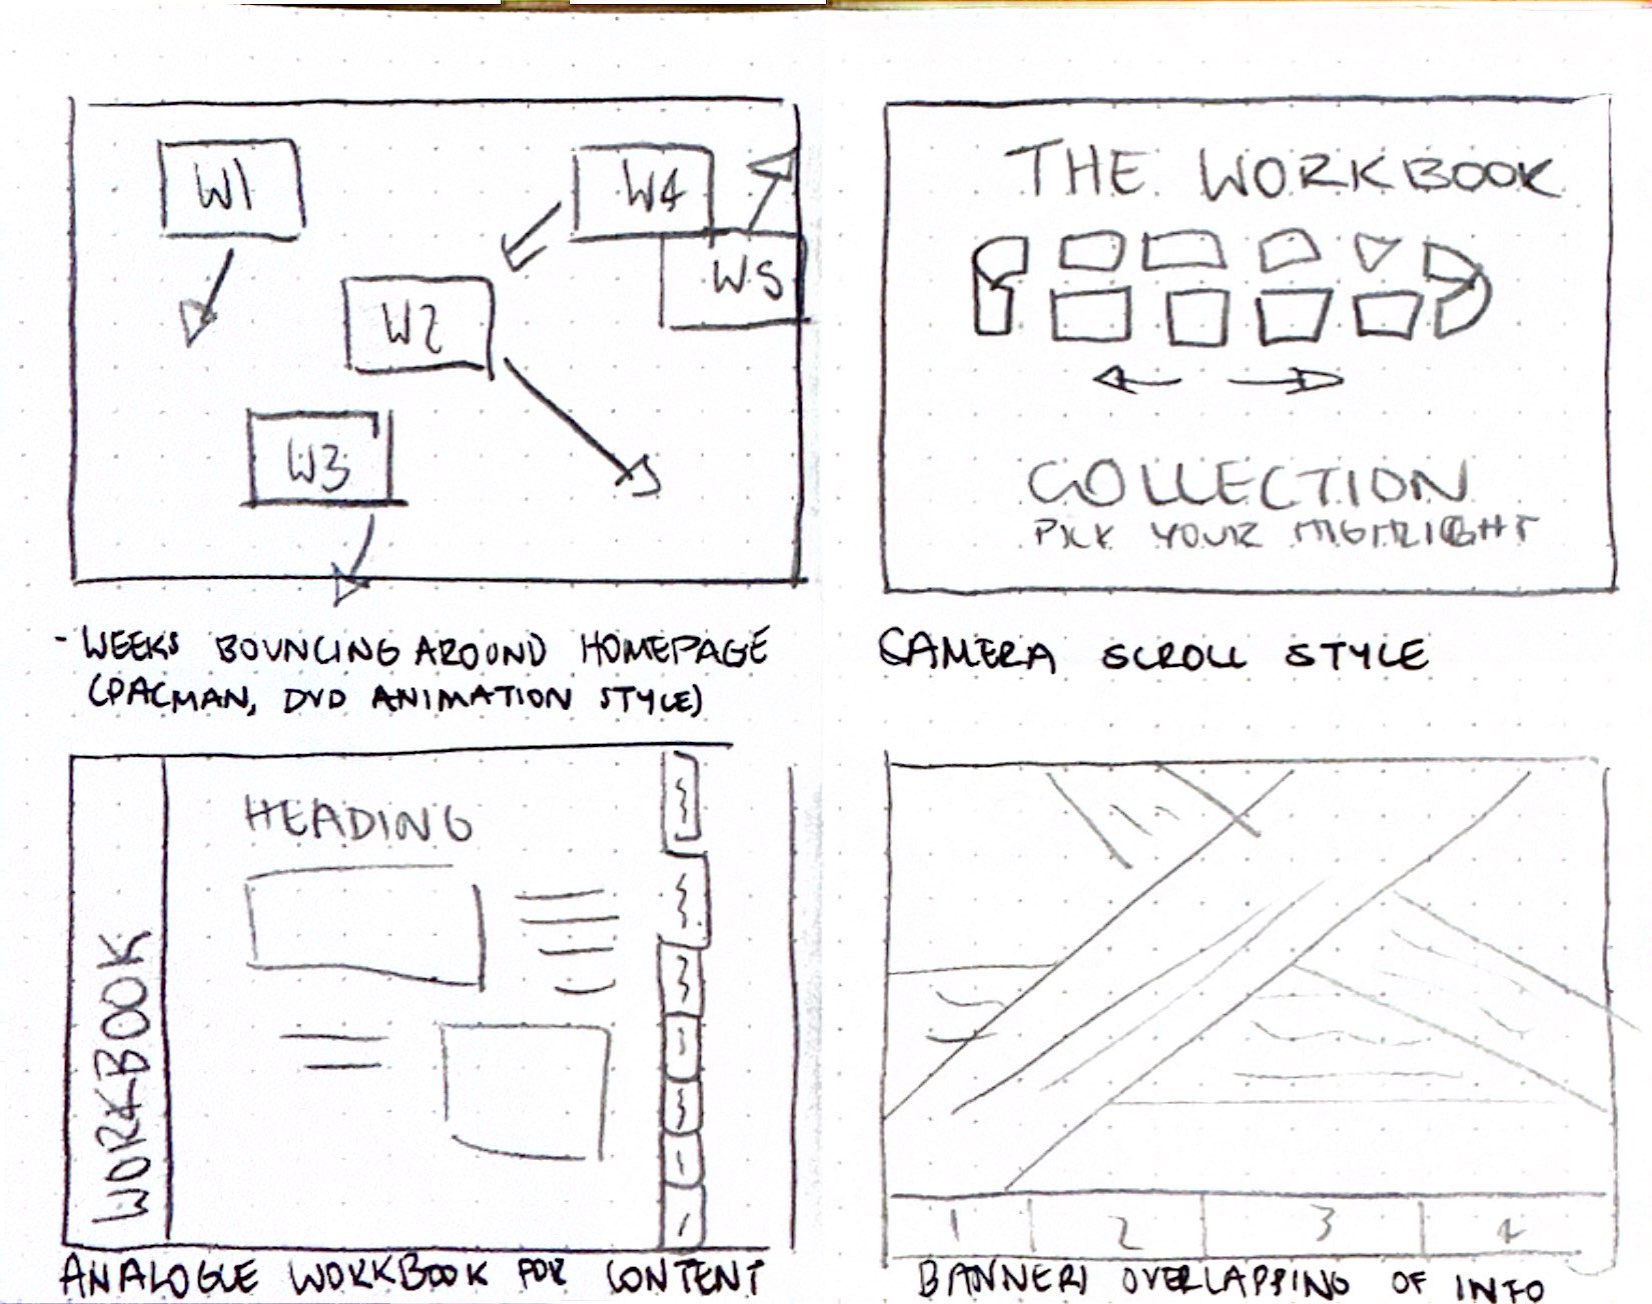 W1
W4
W5
W2
W3
- WEEKS BOUNCING AROUND HOMEPAGE
(PACMAN, DVD ANIMATION STYLE)
THE WORKBOOK
COLLECTION
PICK YOUR HIGHLIGHT
CAMERA SCROLL STYLE
WORKBOOK
HEADING
ANALOGUE WORKBOOK FOR CONTENT
1 2 3 4
BANNERS OVERLAPPING OF INFO